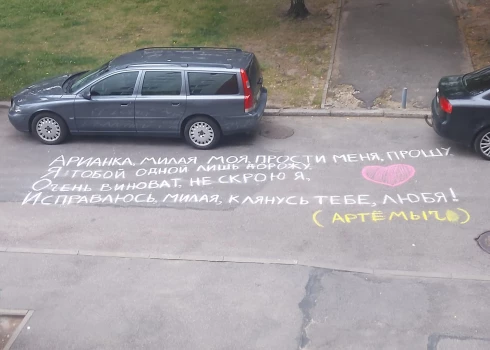 АРИАНКА, МИЛАЯ МОЯ, ПРОСТИ МЕНЯ, ПРОШУ.
Я ТОБОЙ ОДНОЙ ЛИШЬ ДОРОЖУ.
ОЧЕНЬ ВИНОВАТ, НЕ СКРОЮ Я.
ИСПРАВЛЮСЬ, МИЛАЯ, КЛЯНУСЬ ТЕБЕ, ЛЮБЯ!
(АРТЁМЫЧ)